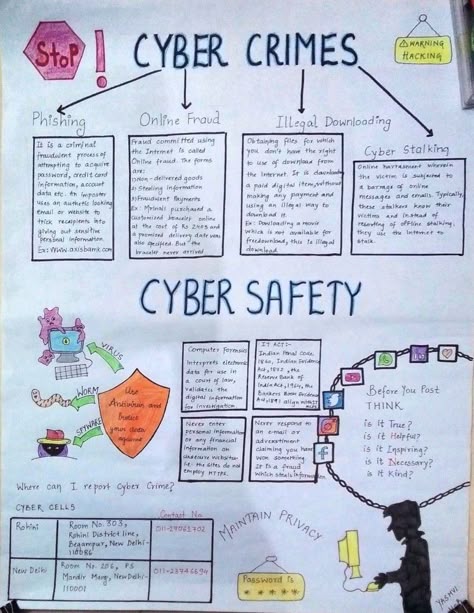 STOP
!
CYBER CRIMES
WARNING
HACKING
Phishing
It is a criminal
fraudulent process of
attempting to acquire
password, credit card
information, account
data etc. An imposter
uses an authentic looking
email or website to
trick recepients into
giving out sensitive
personal information.
Ex: www.axisbank.com
Online Fraud
Fraud committed using
the Internet is called
Online fraud. The forms
are:
1) Non-delivered goods
2) Stealing information
3) Fraudulent Payments
Ex: Mrinali purchased a
customized bracelet online
at the cost of Rs 2405 and
a promised delivery date was
also specified. But the
bracelet never arrived
Illegal Downloading
Obtaining files for which
you don't have the right
to use or download from
the Internet. It is downloading
a paid digital item, without
making any payment and
using an illegal way to
download it
Ex: Downloading a movie
which is not available for
free download, this is illegal
download
Cyber Stalking
Online harrasment wherein
the victim is subjected
to a barrage of online
messages and emails. Typically,
these stalkers know their
victims and instead of
resorting of offline stalking,
they use the Internet to
stalk.
CYBER SAFETY
VIRUS
WORM
SPYWARE
Use
Antivirus and
your data
Computer Forensics
Interprets electronic
data for use in
a court of law,
validate the
digital information
for investigation
IT ACT:-
Indian Penal Code,
1860, Indian Evidence
Act, 1872, the
Reserve Bank of
India Act, 1934, the
Bankers Book Evidence
Act, 1891 align
Never enter
personal information
or any financial
information on
unsecure websites
i.e. the sites do not
employ HTTPS.
Never respond to
an e-mail or
advertisment
claiming you have
won something.
It is a fraud
which steals information
Before You Post
THINK
is it True?
is it Helpful?
is it Inspiring?
is it Necessary?
is it Kind?
Where can I report Cyber Crime?
CYBER CELLS
Contact No.
Rohini
Room No. 303,
Rohini District line,
Begampur, New Delhi-
110086
New Delhi
Room No. 206, PS
Mandir Marg, New Delhi-
110001
011-23746694
MAINTAIN PRIVACY
Password is
* * * * *